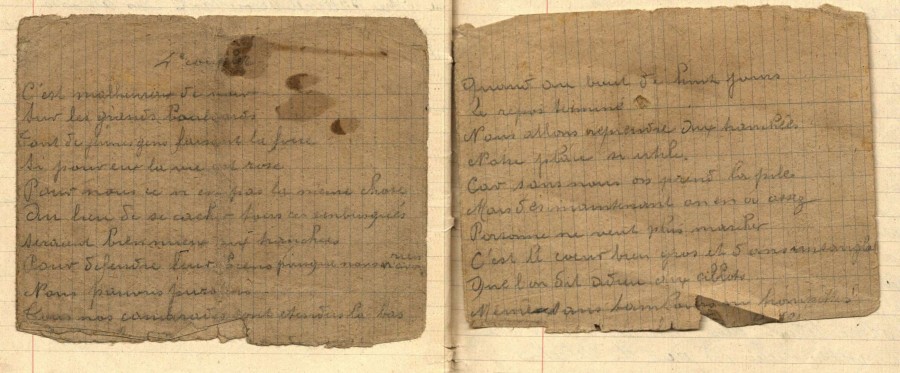 4e couplet
C'est malheureux de voir
Sur les grands boulvards
Tant de gens faisant la foire
Si pour eux la vie est rose
Pour nous ce n'est pas la meme chose
Au lieu de se cach tous ces embusqués
seraient bien mieux aux tranchées
Pour defendre leur biens puisque nous rien
Nous pauvres purotins
Tous nos camarades sont etendus la bas
Quand au bout de huit jours
le repos terminé
Nous allons reprendre aux tranchées
Notre place si utile.
Car sans nous on prend la pile
Mais maintenant on en a assez
Personne ne veut plus marcher
C'est le coeur bien gros et dans un sanglot
Que l'on dit adieu aux ciblots
Meme sans tambours ni trompettes